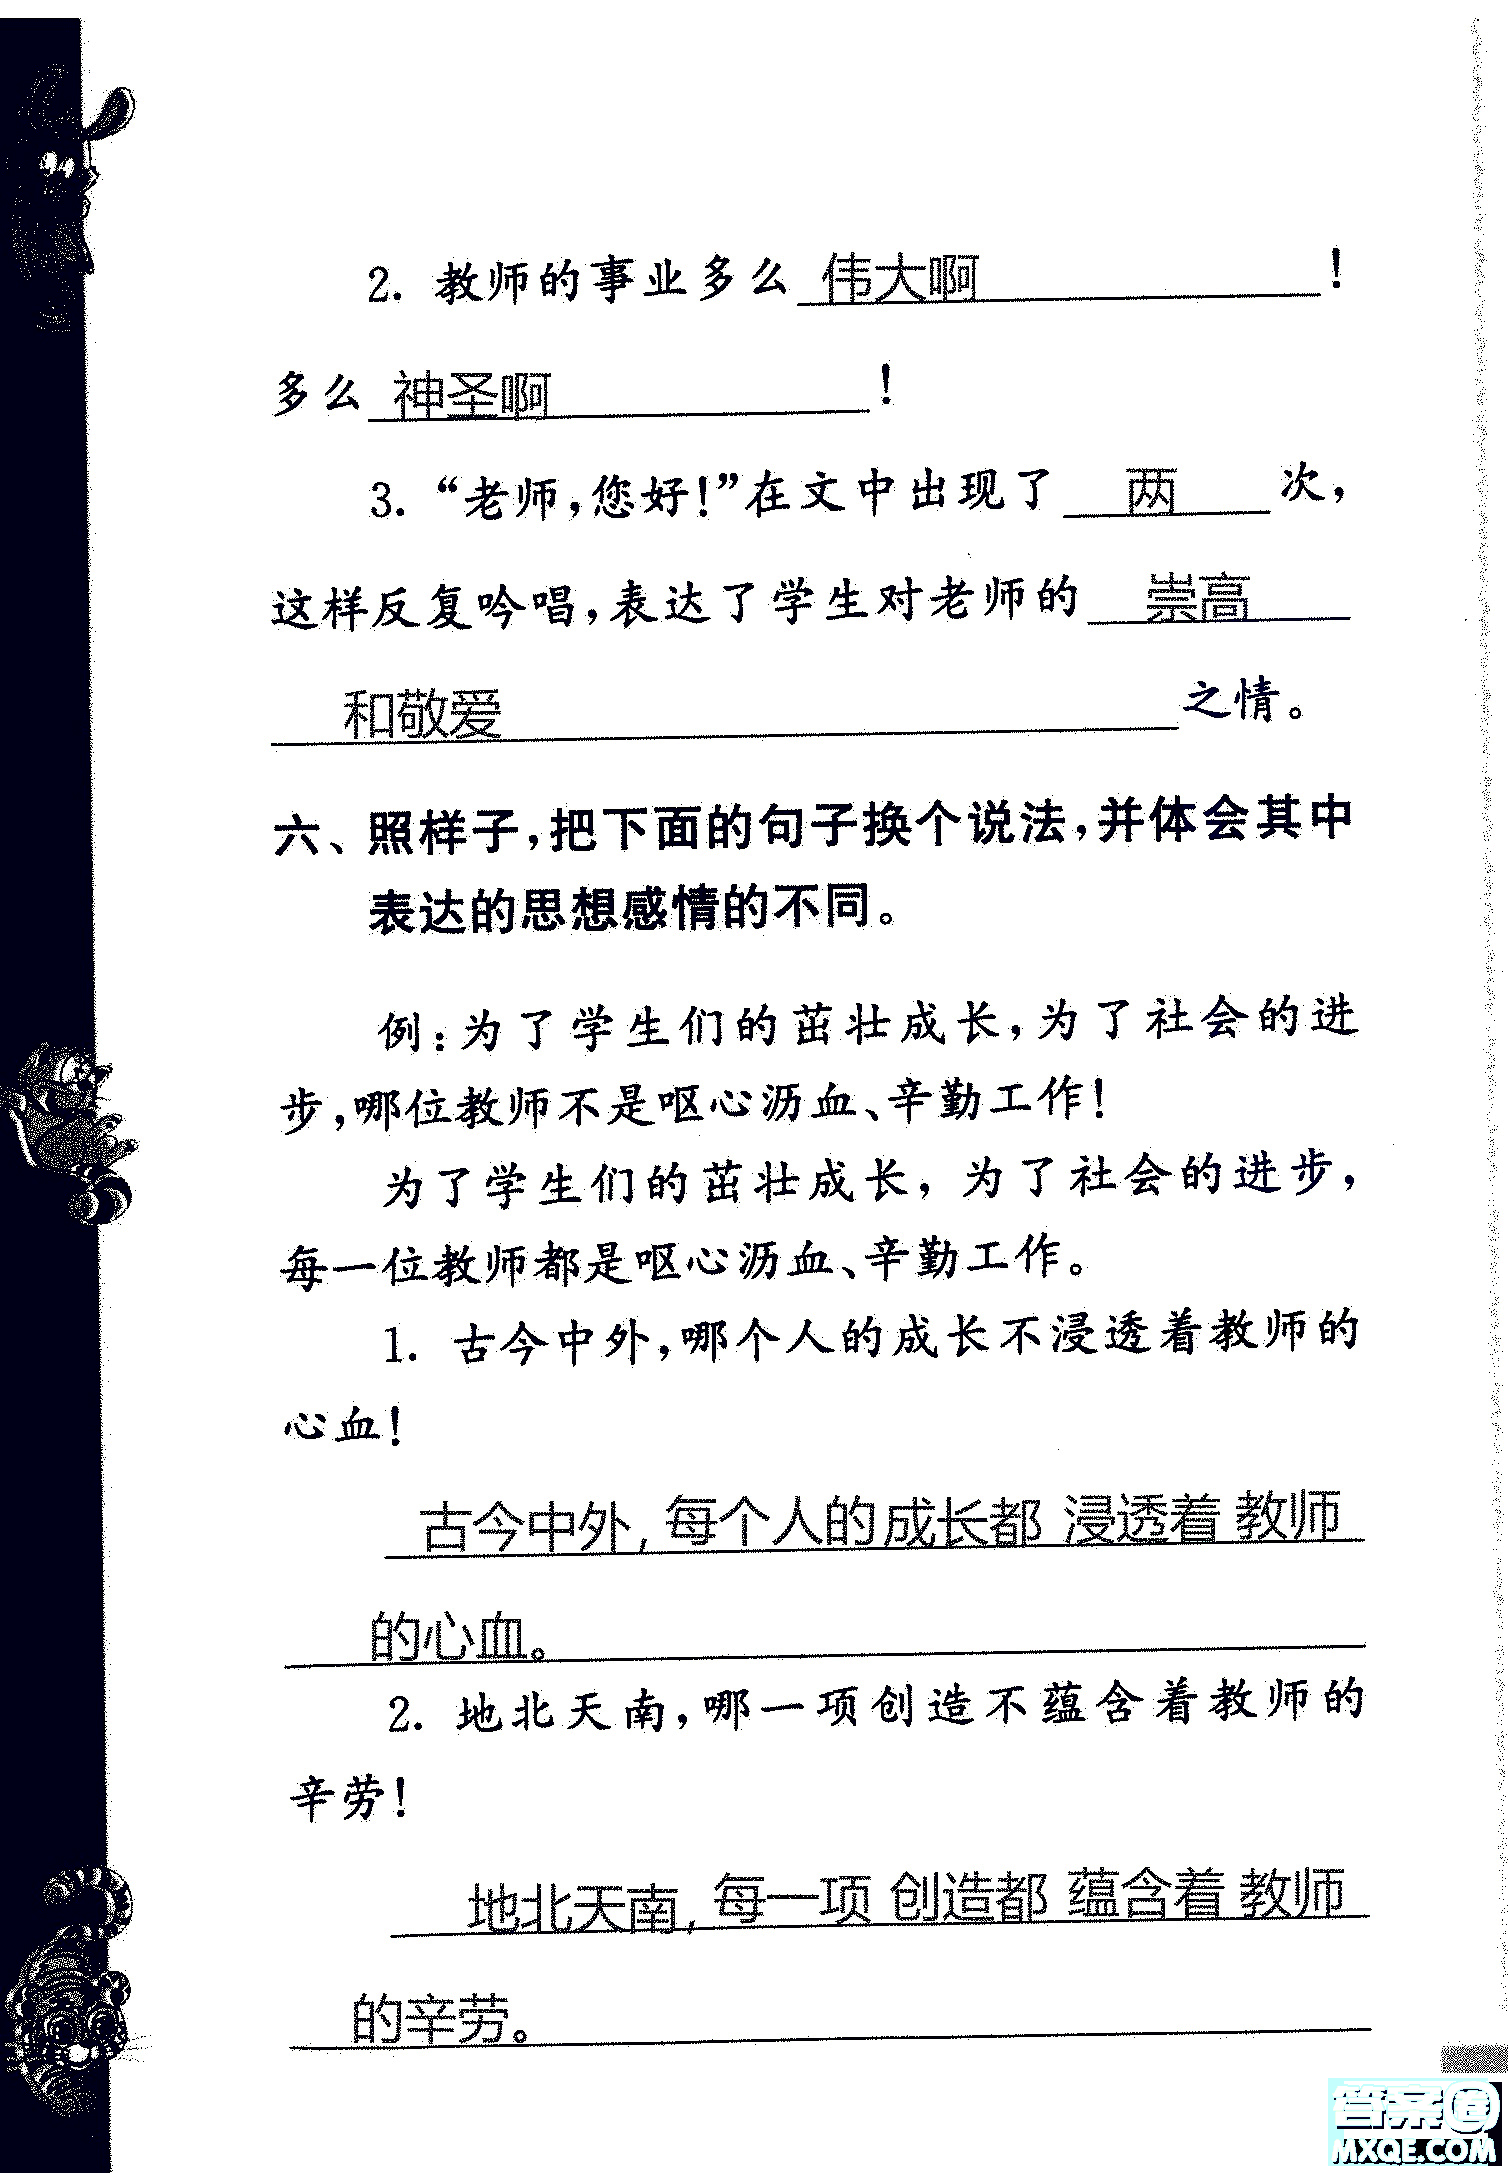 2. 教师的事业多么 伟大啊 !
多么 神圣啊 !
3. “老师,您好!”在文中出现了 两 次,
这样反复吟唱,表达了学生对老师的 崇高
和敬爱 之情。
六、照样子,把下面的句子换个说法,并体会其中
表达的思想感情的不同。
例:为了学生们的茁壮成长,为了社会的进
步,哪位教师不是呕心沥血、辛勤工作!
为了学生们的茁壮成长,为了社会的进步,
每一位教师都是呕心沥血、辛勤工作。
1. 古今中外,哪个人的成长不浸透着教师的
心血!
古今中外, 每个人的成长都 浸透着 教师
的心血。
2. 地北天南,哪一项创造不蕴含着教师的
辛劳!
地北天南, 每一项 创造都 蕴含着 教师
的辛劳。
答案圈
MXQE.COM